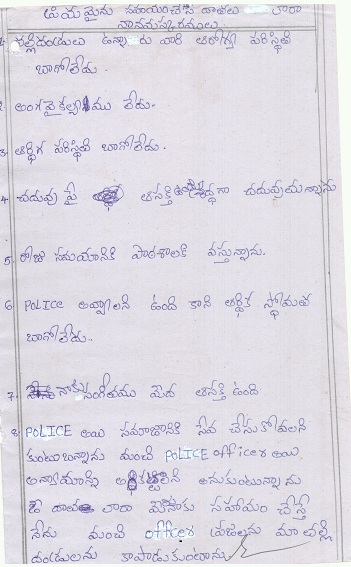 ప్రియ మైను సహాయంచేసే దాతలు వారా
నానమస్కారములు.
1. తల్లిదండులు ఉన్నారు వారి ఆరోగ్య పరిస్థితి
బాగోలేదు.
2. అంగవైకల్యము లేదు.
3. ఆర్థిగ పరిస్థితి బాగోలేదు.
4. చదువు పై ఆసక్తి శ్రద్ధగా చదువుచున్నాను
5. రోజు సమయానికి పాఠశాలకి వస్తున్నాను.
6 POLICE అవ్వాలని ఉంది కాని ఆర్థిక స్థోమత
బాగోలేదు..
7. నాకు సంగీతము మీద ఆసక్తి ఉంది
8. POLICE అయి సమాజానికి సేవ చేసుకోవలని
కుంటున్నాను మంచి POLICE officer అయి.
అన్యాయాన్ని అనుకుంటున్నాను
ఓ దాత వారా నాకు సహాయం చేస్తే
నేను మంచి officer మా తల్లి
దండులను కాపాడుకుంటాను